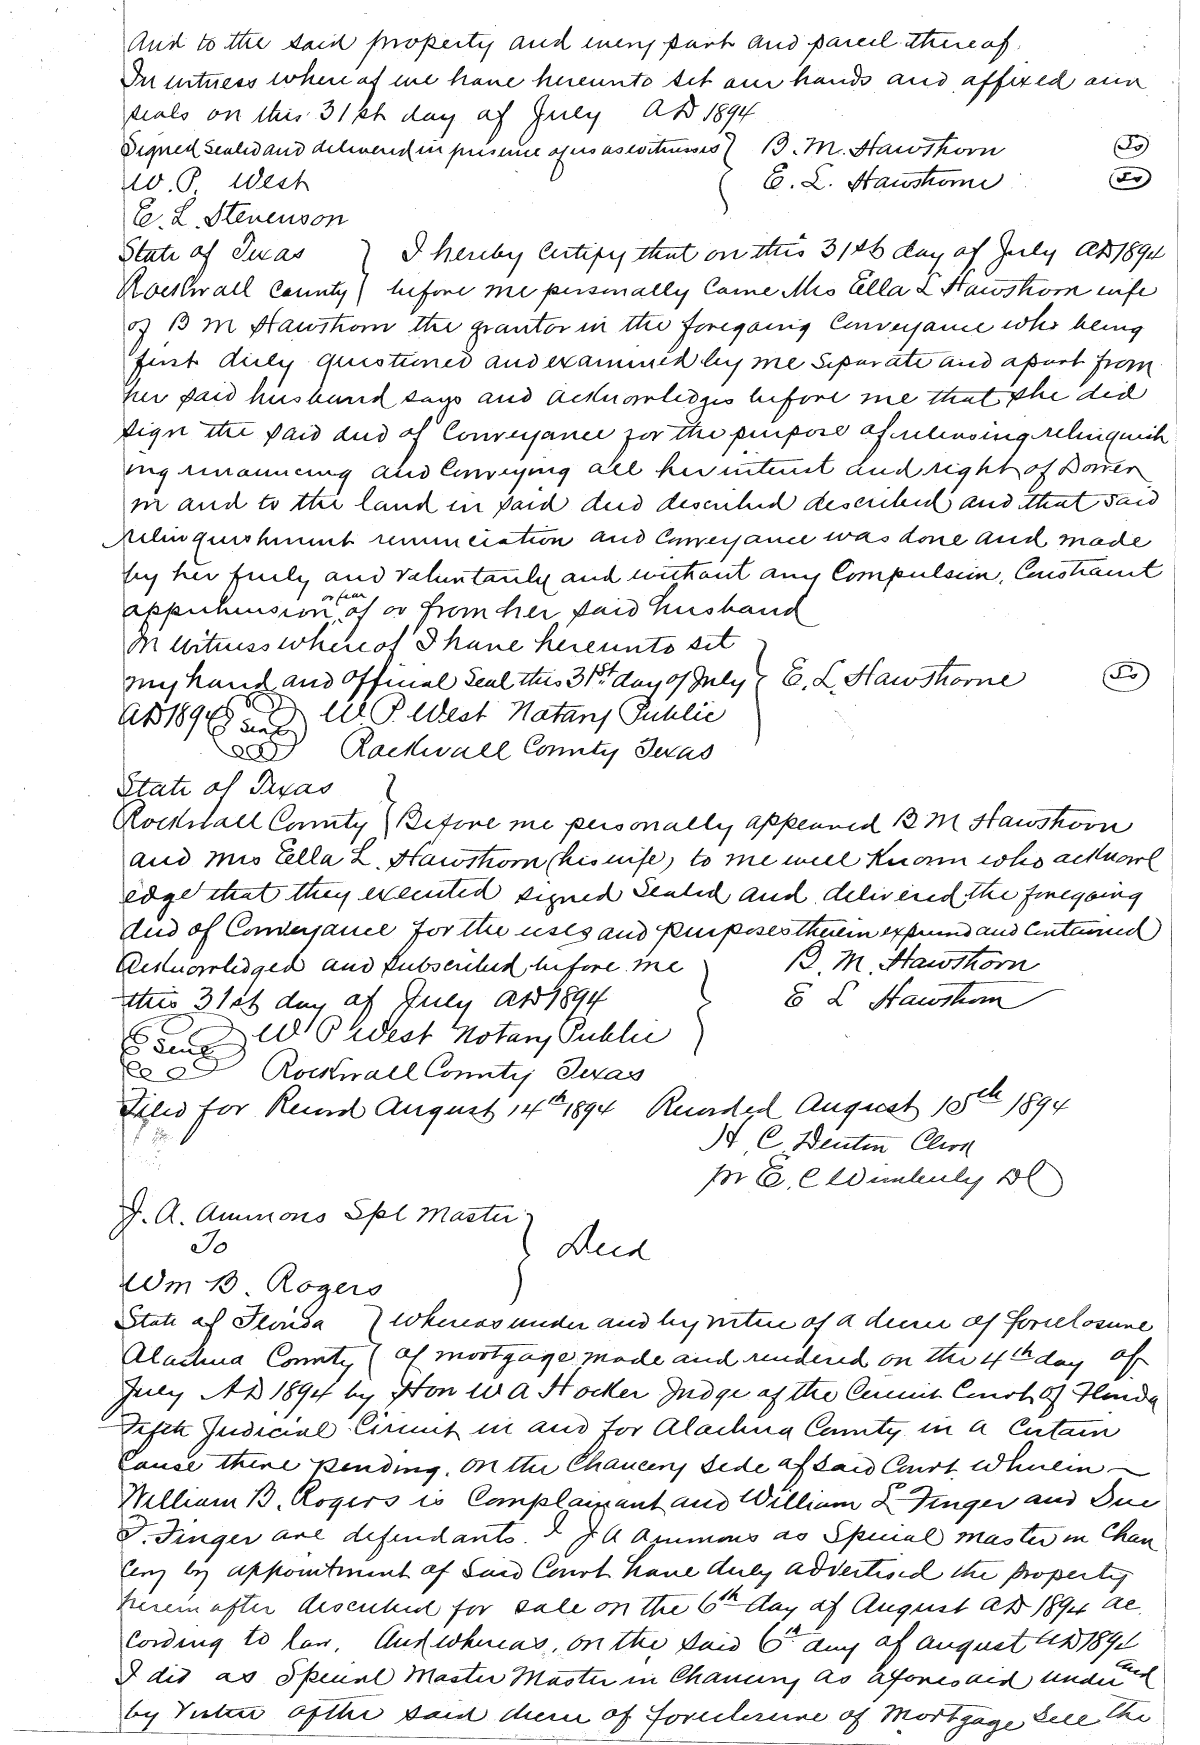 And to the said property and every part and parcel thereof.
In witness where of we have hereunto set our hands and affixed our
seals on this 31st day of July AD 1894
Signed Sealed and delivered in presence of us as witnesses } B. M. Hawthorn
W. P. West { E. L. Hawthorne
E. L. Stevenson
State of Texas } I hereby certify that on this 31st day of July AD 1894
Rockwall County } before me personally Came Mrs Ella L Hawthorn wife
of B M Hawthorn the grantor in the foregoing Conveyance who being
first duly questioned and examined by me Separate and apart from
her said husband says and acknowledges before me that she did
sign the said deed of Conveyance for the purpose of releasing relinquish
ing renouncing and Conveying all her interest and right of Dower
in and to the land in said deed described described and that said
relinquishment renunciation and Conveyance was done and made
by her freely and voluntarily and without any Compulsion, Constraint
apprehension or fear of or from her said husband
In witness where of I have hereunto set
my hand and Official Seal this 31st day of July { E. L. Hawthorne
AD 1894 Seal W. P. West Notary Public
Rockwall County Texas
State of Texas }
Rockwall County } Before me personally appeared B M Hawthorn
and Mrs Ella L. Hawthorn (his wife) to me well Known who acknowl
edge that they executed signed Sealed and delivered the foregoing
deed of Conveyance for the uses and purposes therein expressed and contained
Acknowledged and subscribed before me } B. M. Hawthorn
this 31st day of July AD 1894 E L Hawthorn
Seal W P West Notary Public
Rockwall County Texas
Filed for Record August 14th 1894 Recorded August 15th 1894
H. C. Denton Clerk
pr E. C Wimberly DC
J. A. Ammons Spl Master }
To } Deed
Wm B. Rogers
State of Florida } whereas under and by virtue of a decree of foreclosure
Alachua County { of mortgage made and rendered on the 4th day of
July AD 1894 by Hon W A Hocker Judge of the Circuit Court of Florida
Fifth Judicial Circuit in and for Alachua County in a Certain
Cause there pending, on the Chancery Side of said Court wherein
William B. Rogers is Complainant and William L Finger and Sue
F. Finger are defendants. I J A Ammons as Special Master in Chan
cery by appointment of Said Court have duly advertised the property
herein after described for sale on the 6th day of August AD 1894 ac
cording to law, And whereas, on the said 6th day of august AD 1894
I did as Special Master Master in Chancery as aforesaid under and
by virtue of the said decree of foreclosure of Mortgage Sell the